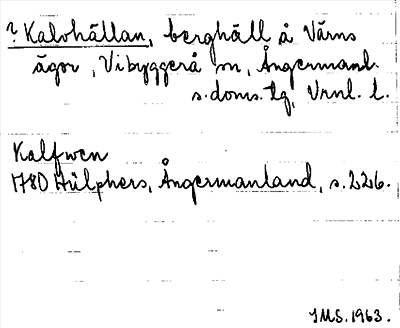 ? Kalvhällan, berghäll å Värns
ägor, Vibyggerå sn, Ångermanl.
s. doms. tg, Vrnl. l.
Kalfwen
1780 Hülphers, Ångermanland, s. 226.
JMS. 1963.